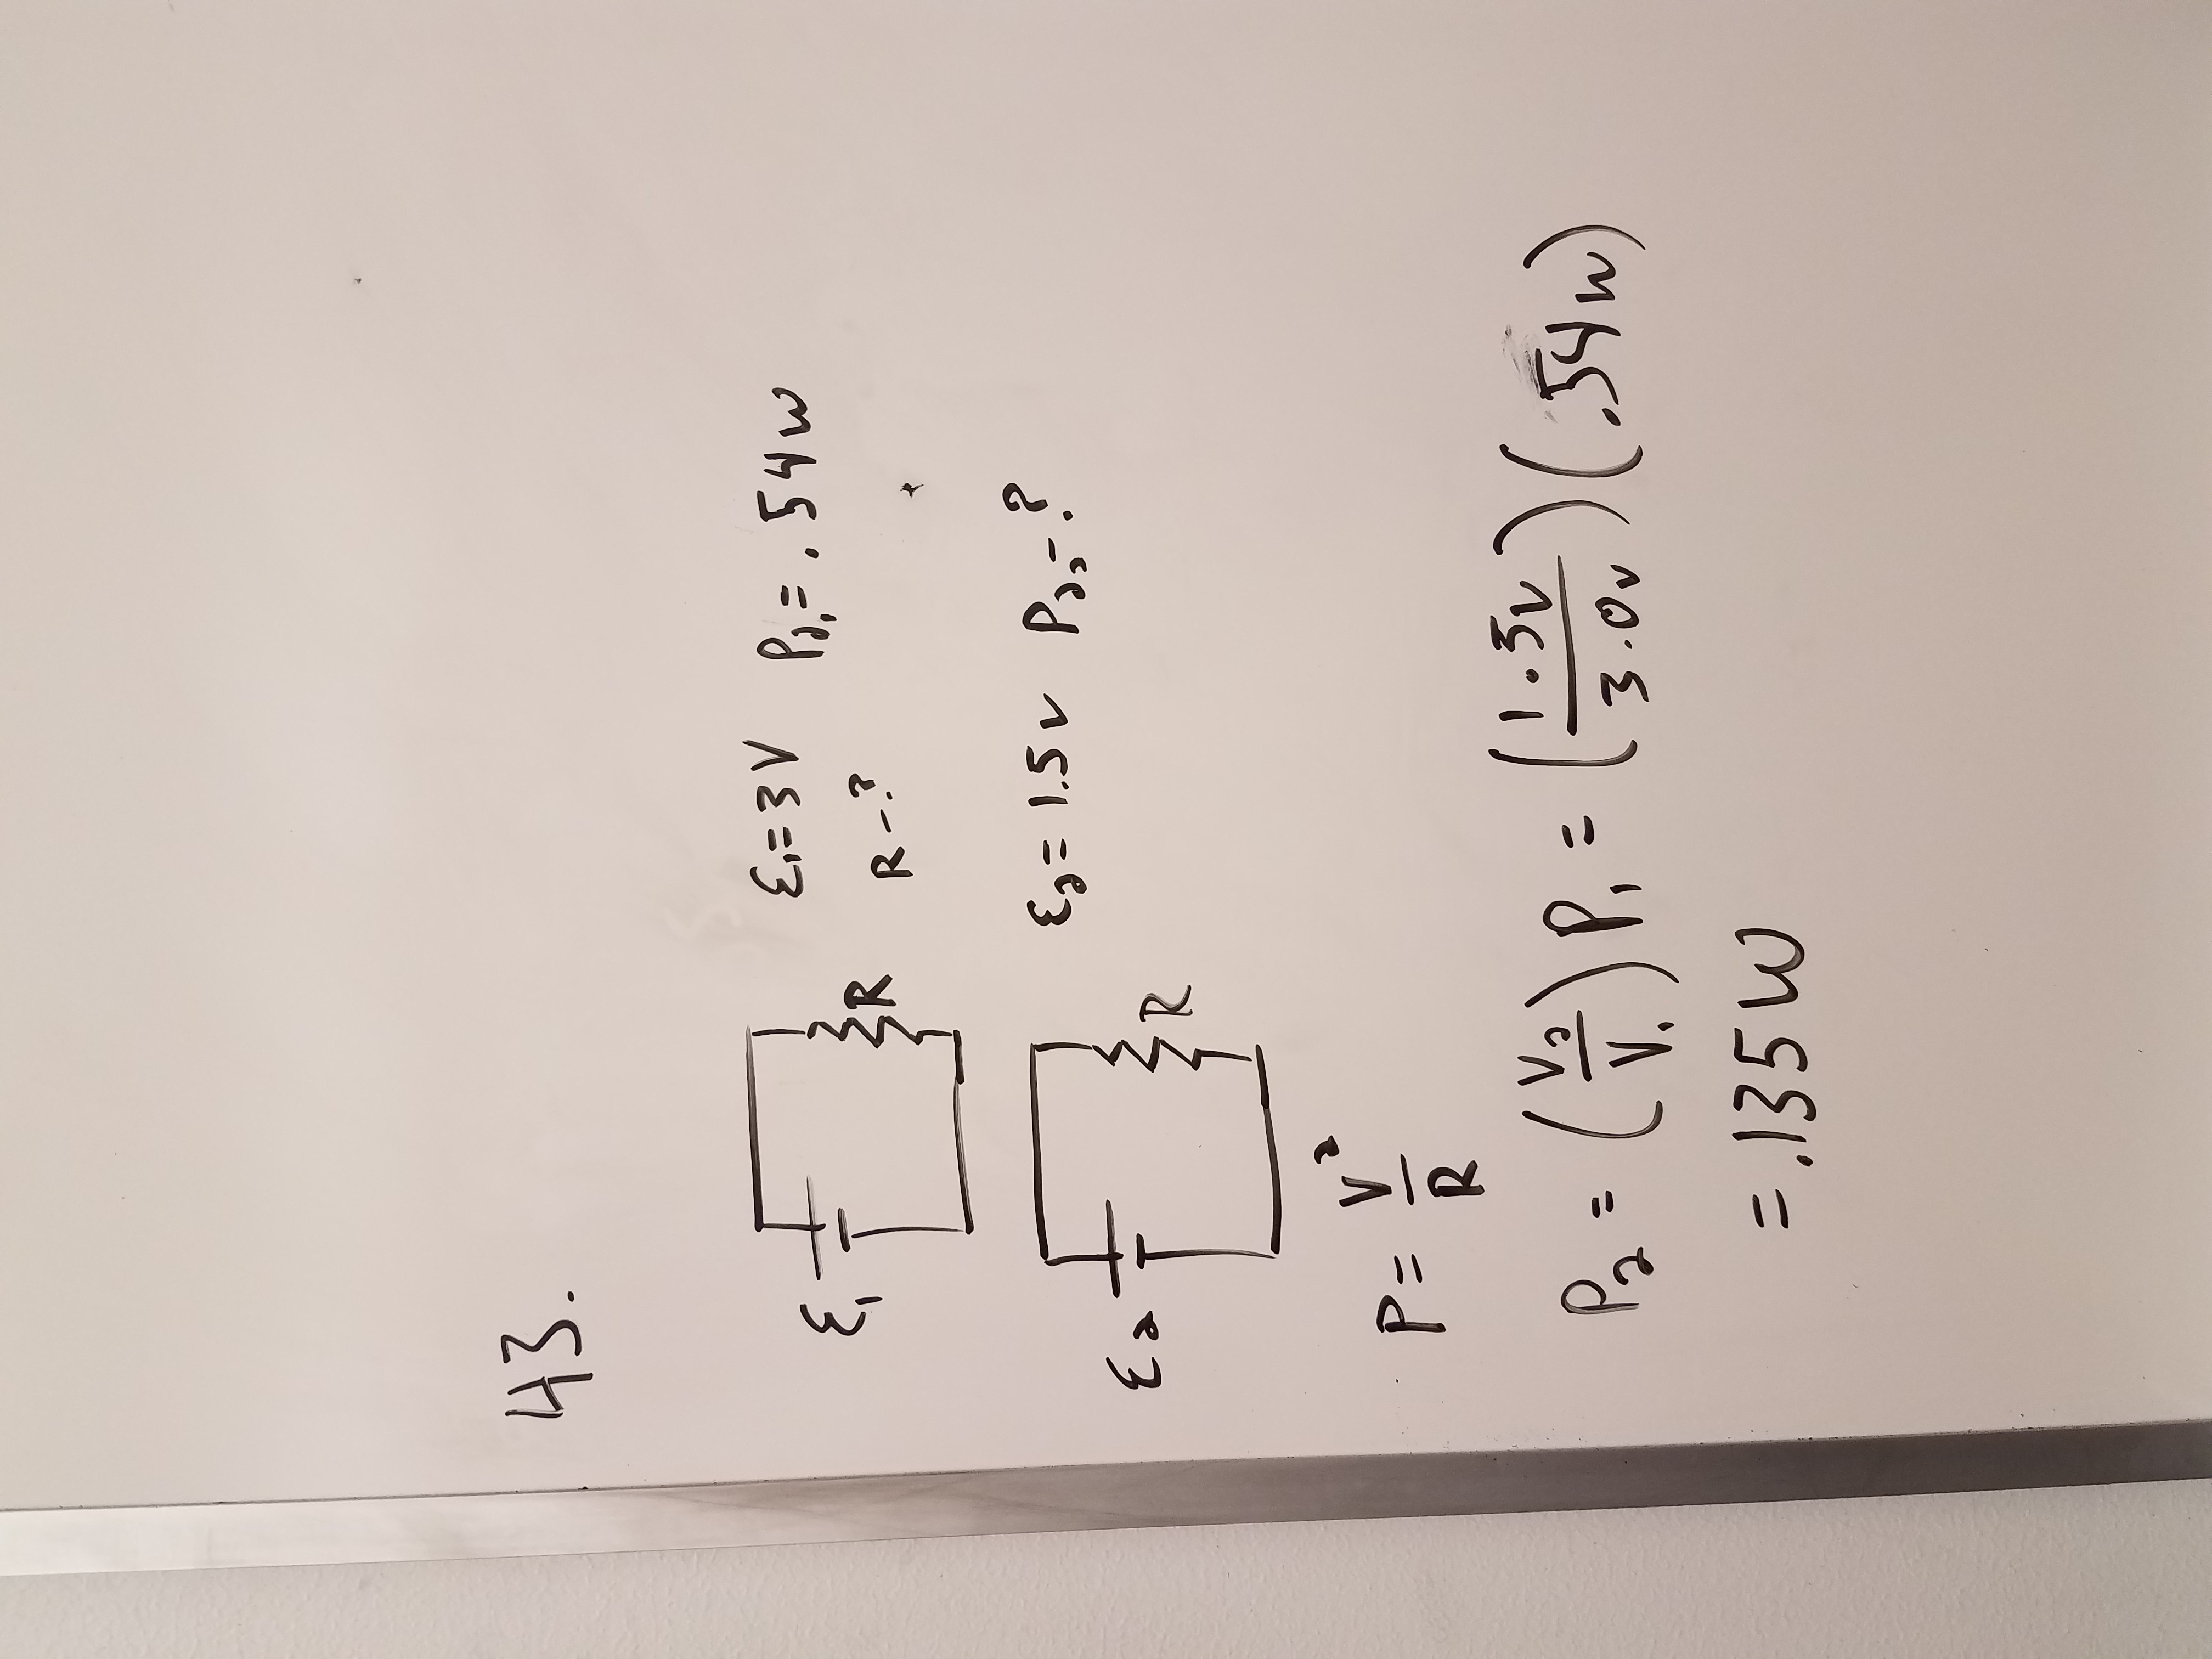 43.
ℰ₁ R ℰ₁=3V P₂₁=.54w
R-?
ℰ₂ R ℰ₂=1.5v P₂₂-?
P= V²/R
P₂ = (V₂/V₁) P₁ = (1.5v/3.0v)(.54w)
= .135W